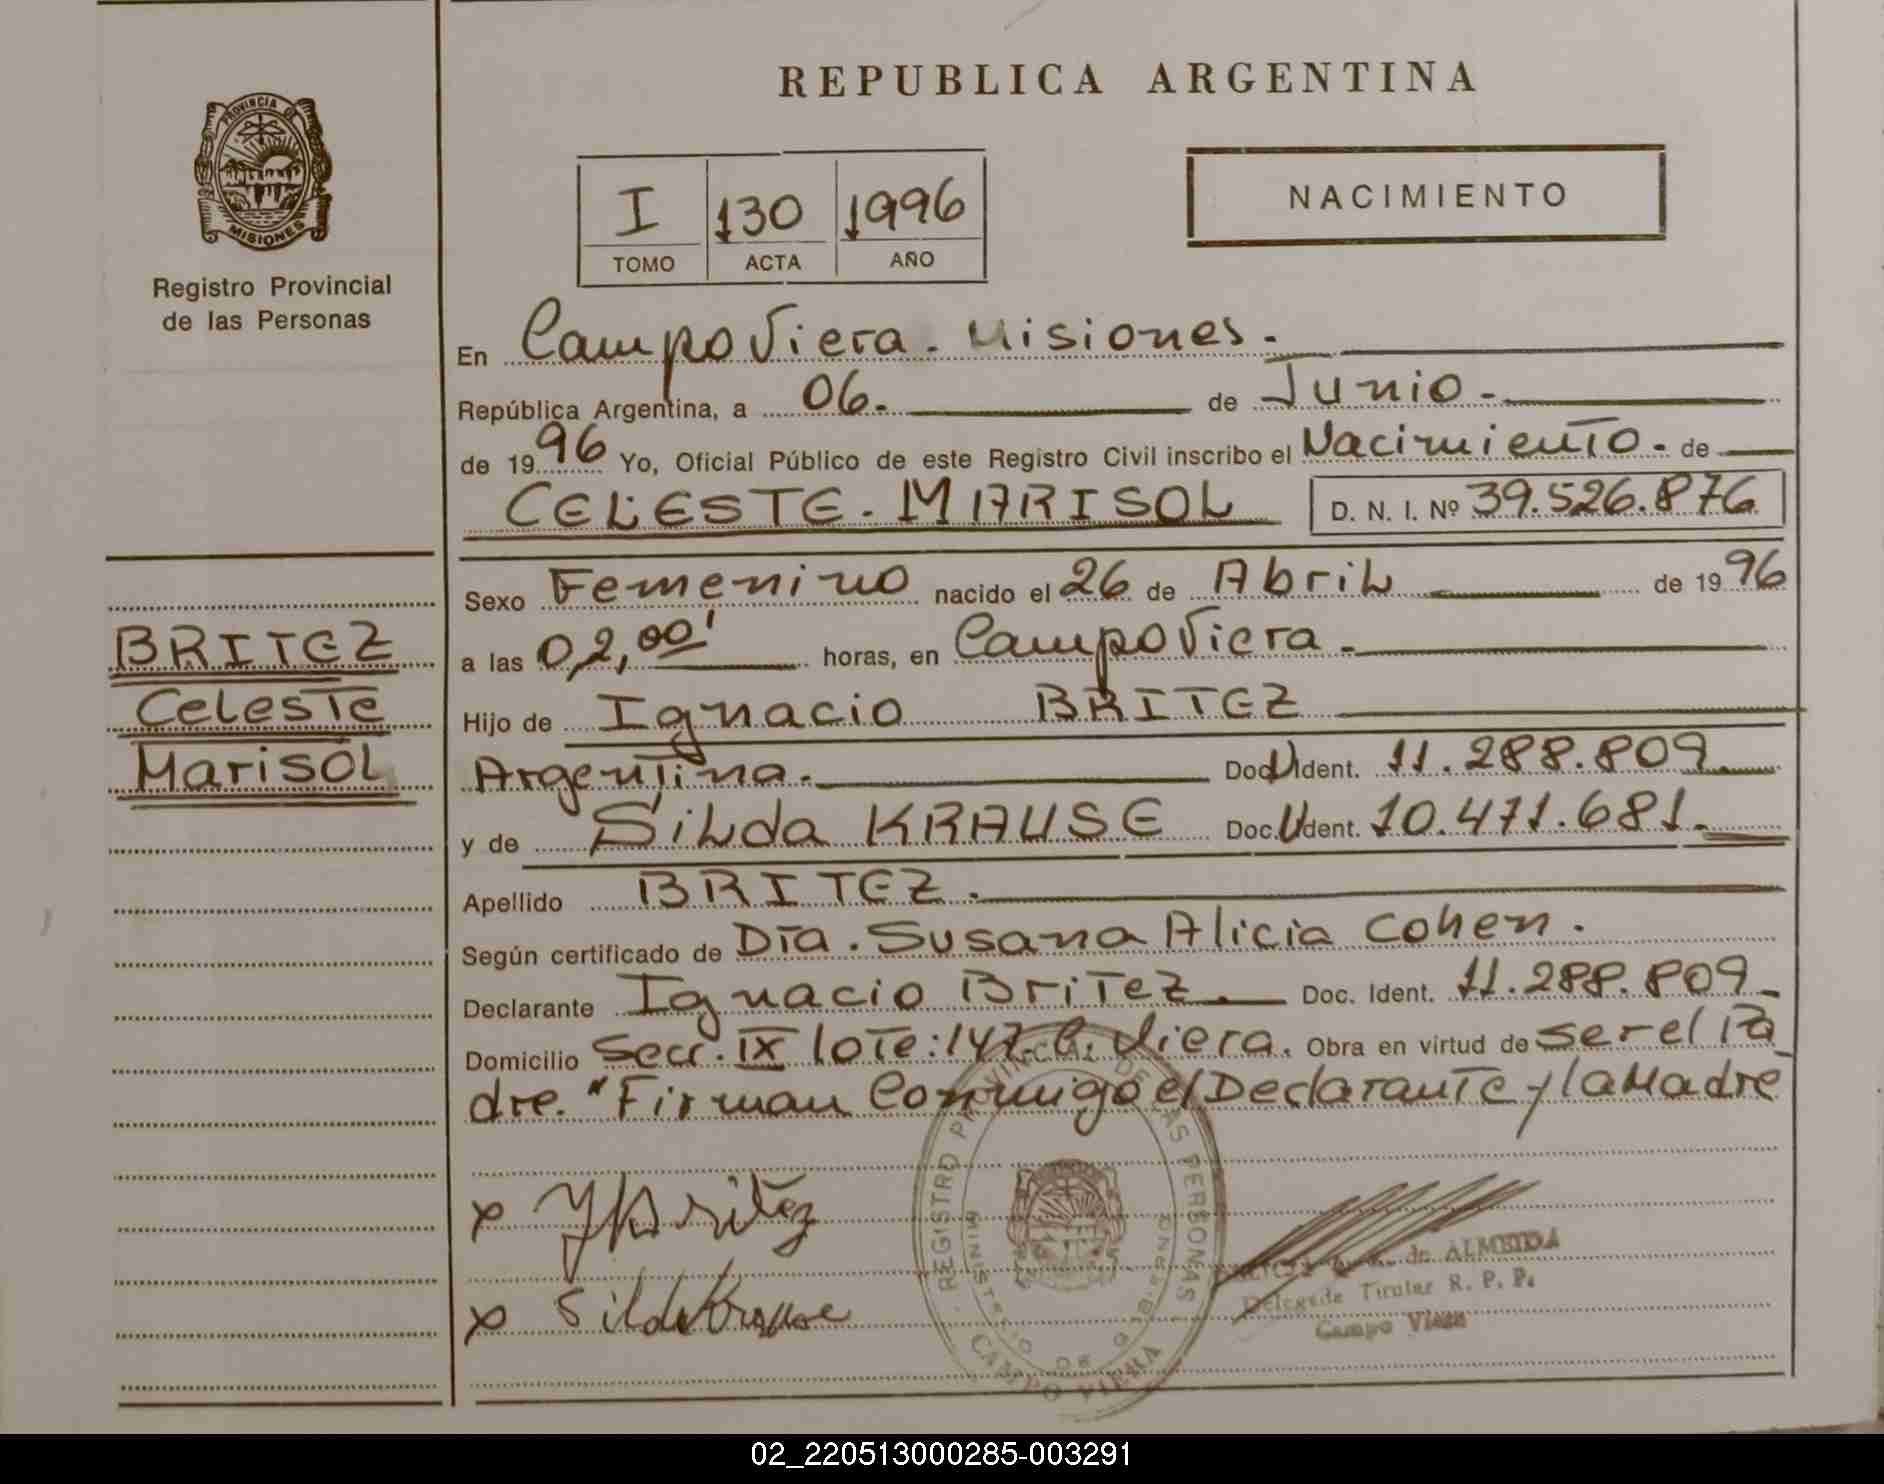 REPUBLICA ARGENTINA
PROVINCIA DE
MISIONES
Registro Provincial
de las Personas
I 130 1996
TOMO ACTA AÑO
NACIMIENTO
En Campo Viera. Misiones.
República Argentina, a 06. de Junio.
de 1996 Yo, Oficial Público de este Registro Civil inscribo el Nacimiento. de
CELESTE. MARISOL D. N. I. Nº 39.526.876
BRITEZ
Celeste
Marisol
Sexo Femenino nacido el 26 de Abril de 1996
a las 02,00' horas, en Campo Viera.
Hijo de Ignacio BRITEZ
Argentina. Doc. Ident. 11.288.809.
y de Silda KRAUSE Doc. Ident. 10.471.681.
Apellido BRITEZ.
Según certificado de Dra. Susana Alicia Cohen.
Declarante Ignacio Britez. Doc. Ident. 11.288.809
Domicilio Secc. IX lote: 147. C. Viera. Obra en virtud de ser el Pa
dre. "Firman Conmigo el Declarante y la Madre
x Britez
x Silda Krause
REGISTRO PROVINCIAL DE LAS PERSONAS
MINISTERIO DE GOBIERNO
CAMPO VIERA
de ALMEIDA
Delegada Titular R. P. P.
Campo Viera
02_220513000285-003291